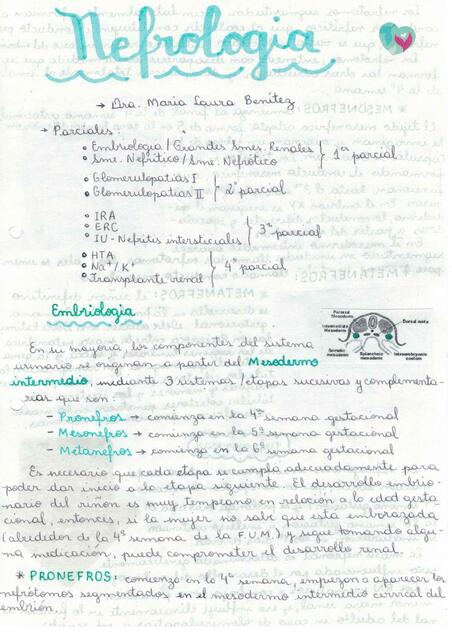 Nefrología
→ Dra. Maria Laura Benitez
→ Parciales:
• Embriologia / Grandes Smes. Renales
• Sme. Nefrítico / Sme Nefrótico } 1er parcial
• Glomerulopatias I
• Glomerulopatias II } 2° parcial
• IRA
• ERC
• IU - Nefritis intersticiales } 3er parcial
• HTA
• Na+/K+
• Transplante renal } 4° parcial
Embriología
Dorsal aorta
Intermediate
Somatic
mesoderm
Splanchnic
mesoderm
Intraembryonic
En su mayoría, los componentes del sistema
urinario se originan a partir del Mesodermo
intermedio, mediante 3 sistemas/etapas sucesivas y complementa-
rias que son:
- Pronefros → comienza en la 4° semana gestacional
- Mesonefros → comienza en la 5° semana gestacional
- Metanefros → comienza en la 6° semana gestacional
Es necesario que cada etapa se cumpla adecuadamente para
poder dar inicio a la etapa siguiente. El desarrollo embrio-
nario del riñon es muy temprano en relación a la edad gesta
cional, entonces, si la mujer no sabe que está embarazada
(alrededor de la 4° semana de la F.U.M) y sigue tomando algu-
na medicación, puede comprometer el desarrollo renal.
* PRONEFROS: comienza en la 4° semana, empiezan a aparecer los
nefrótomos segmentados en el mesodermo intermedio cervical del
embrión.